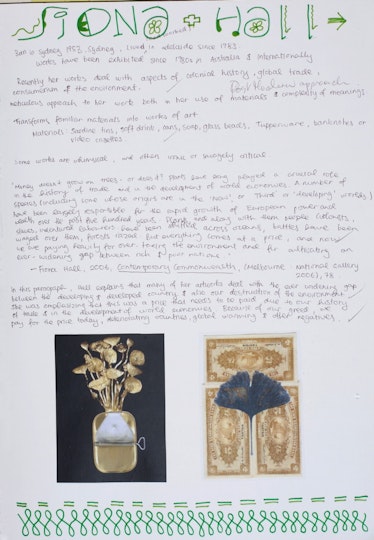 FIONA + HALL
Born in Sydney 1953, Sydney, Lived in adelaide since 1983
Works have been exhibited since 1980s in Australia & internationally
Recently her works deal with aspects of colonial history, global trade,
consumerism & the environment.
Post Modern approach
meticulous approach to her work both in her use of materials & complexity of meanings
Transforms familiar materials into works of art
Materials: Sardine tins, soft drink cans, soap, glass beads, Tupperware, banknotes or
video cassettes
Some works are whimsical, and others witty or savagely critical
'Money doesn't grow on trees - or does it? Plants have long played a crucial role
in the history of trade and in the development of world economies. A number of
species (including some whose origins are in the 'New', or 'Third' or 'developing' worlds)
have been largely responsible for the rapid growth of European power and
wealth over the past five hundred years. Plants and along with them people (colonists,
slaves, indentured labourers) have been shifted across oceans, battles have been
waged over them, forests razed. But everything comes at a price, and now
we are paying heavily for over-taxing the environment and for cultivating an
ever-widening gap between rich and poor nations.
- Fiona Hall, 2006. Contemporary Commonwealth, (Melbourne: National Gallery
2006), 78
In this paragraph, Hall explains that many of her artworks deal with the ever widening gap
between the developing & developed country & also our destruction of the environment.
She was emphasising that there was a price that needs to be paid due to our history
of trade & in the development of world economies. Because of our greed, we
pay for the price today, deteriorating countries, global warming & other negatives.